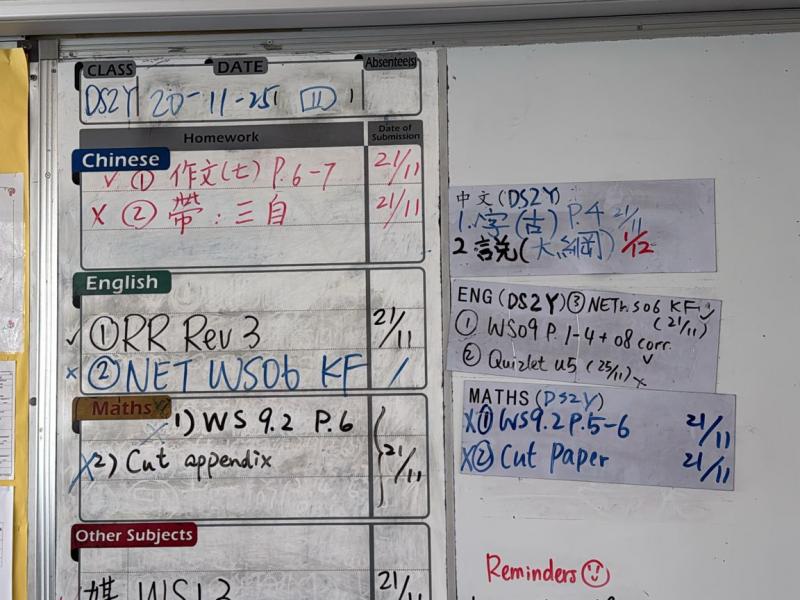 CLASS DATE Absentee(s)
DS2Y 20-11-25
Homework Date of Submission
Chinese
✓ ① 作文(七) P.6-7 21/11
X ② 帶:三自 21/11
English
✓ ① RR Rev 3 21/11
x ② NET WS06 KF /
Maths
1) WS 9.2 P.6
X 2) Cut appendix 21/11
Other Subjects
WS1.3 21/11
中文(DS2Y)
1. 字(古) P.4 21/11
2 說(大綱) 1/12
ENG (DS2Y) ③ NETWS06 KF ✓
(21/11)
① WS09 P.1-4 + 08 corr.
✓
② Quizlet u5 (25/11) x
MATHS (DS2Y)
X ① WS9.2 P.5-6 21/11
X ② Cut Paper 21/11
Reminders